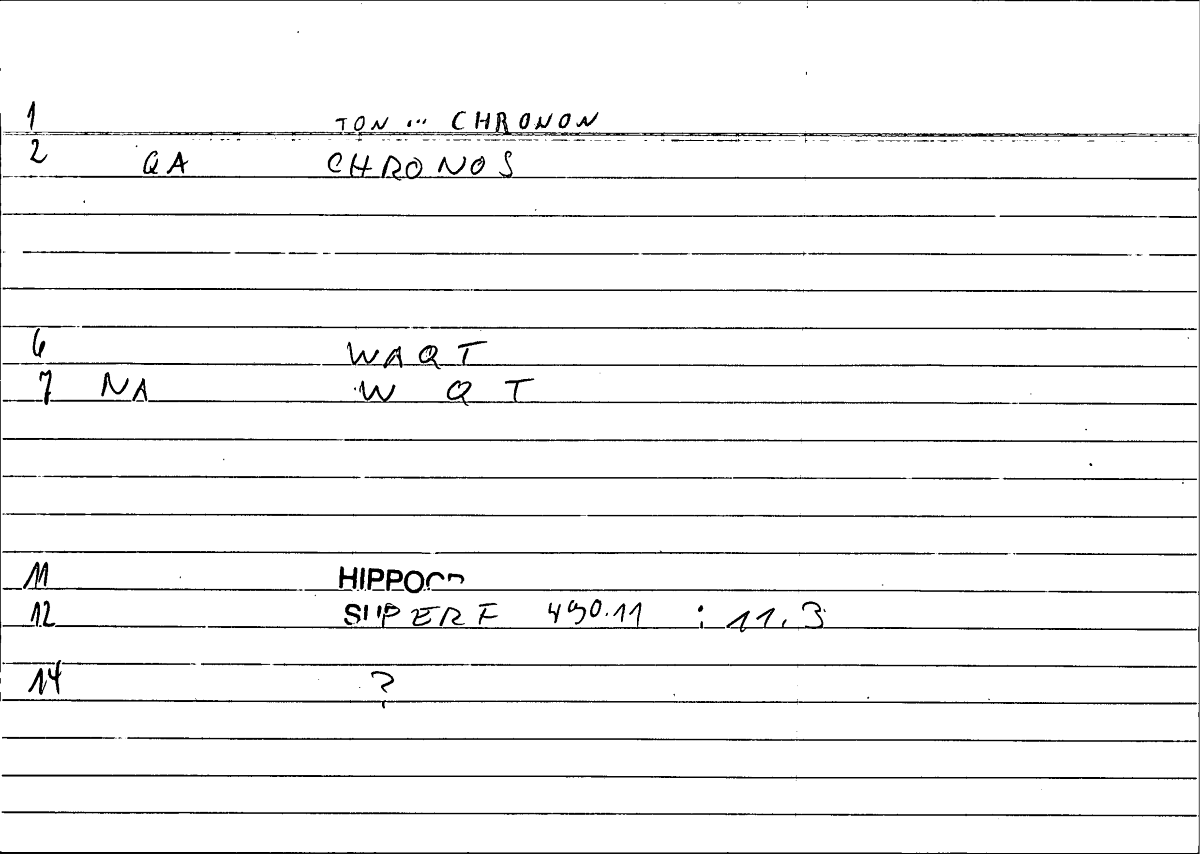 1 TON ... CHRONON
2 QA CHRONOS
6 WAQT
7 NA W Q T
11 HIPPOCR
12 SUPERF 490.11 : 11.3
14 ?